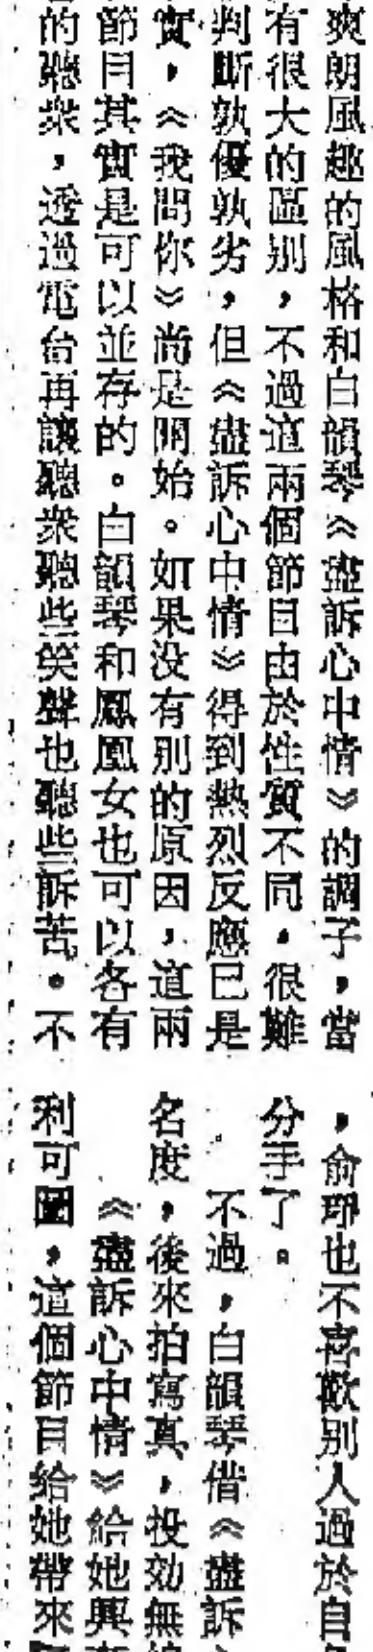 爽朗風趣的風格和白韻琴《盡訴心中情》的調子，當
有很大的區別，不過這兩個節目由於性質不同，很難
判斷孰優孰劣，但《盡訴心中情》得到熱烈反應已是
實，《我問你》尚是開始。如果没有別的原因，這兩
節目其實是可以並存的。白韻琴和鳳凰女也可以各有
的聽衆，透過電台再讓聽衆聽些笑聲也聽些訴苦。不
，俞琤也不喜歡别人過於自
分手了。
不過，白韻琴借《盡訴
名度，後來拍寫真，投効無
《盡訴心中情》給她興
利可圖，這個節目給她帶來